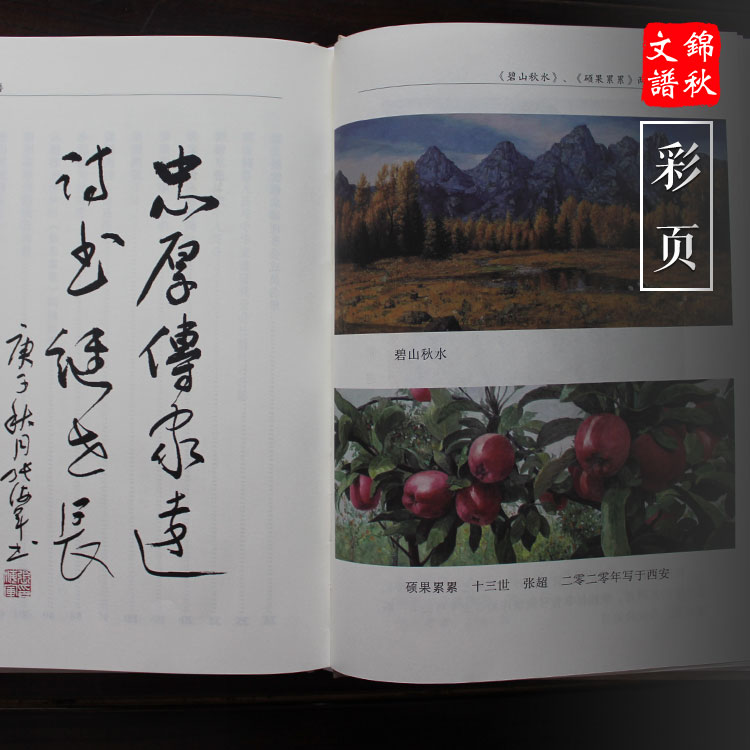 忠厚傳家遠
诗书继世長
庚子秋月张海军书
《碧山秋水》、《硕果累累》
碧山秋水
硕果累累 十三世 张超 二零二零年写于西安
錦秋
文譜
彩页